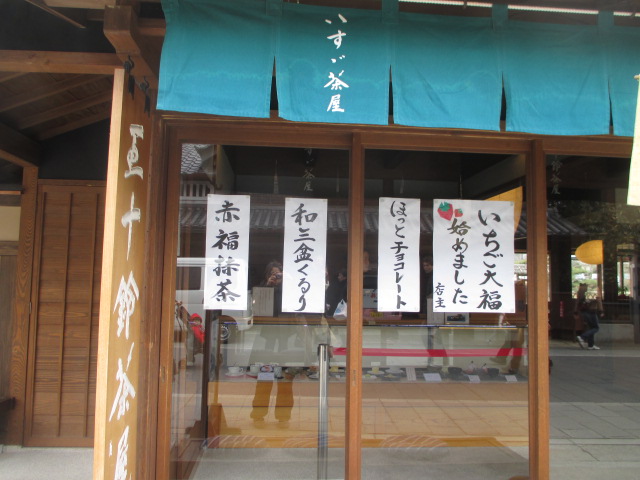 いすゞ茶屋
五十鈴茶屋
赤福抹茶
和三盆くるり
ほっとチョコレート
いちご大福
始めました
店主